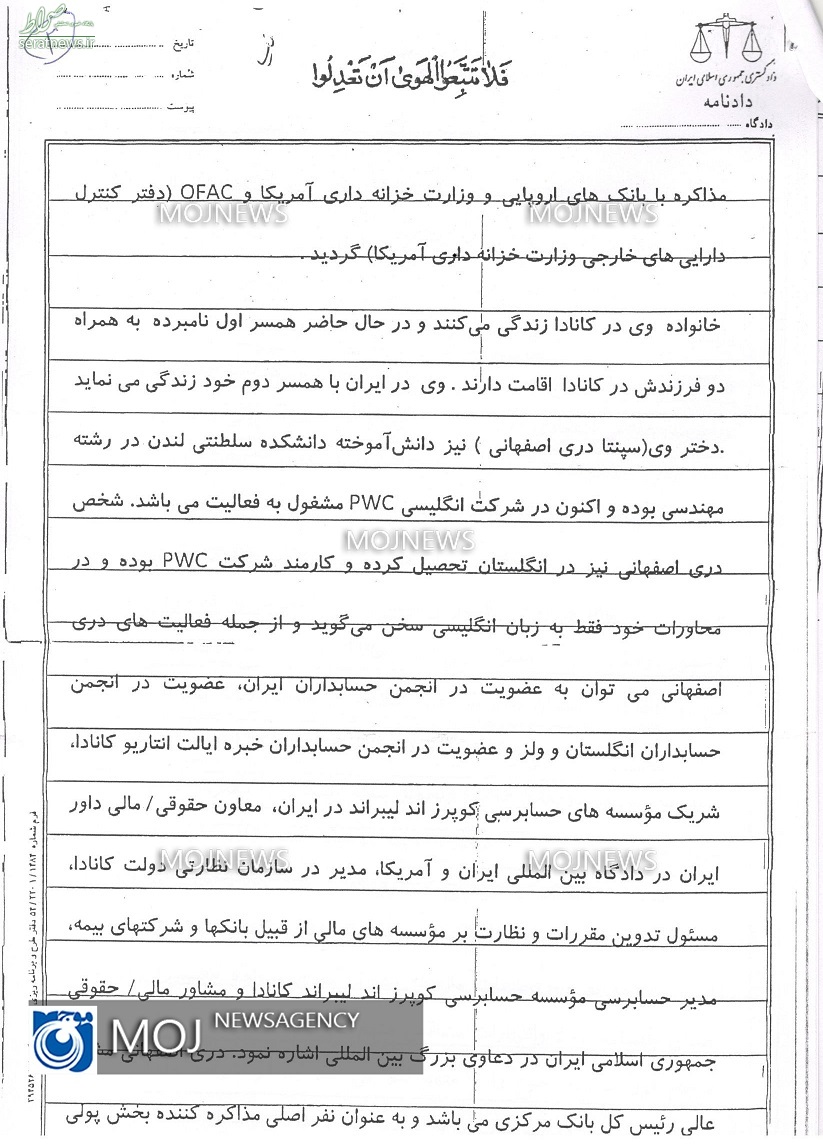 صراط
seratnews.ir
تاریخ
شماره
پیوست
فَلا تَتَّبِعُوا الْهَوىٰ اَنْ تَعْدِلُوا
دادگستری جمهوری اسلامی ایران
دادنامه
دادگاه
مذاکره با بانک های اروپایی و وزارت خزانه داری آمریکا و OFAC (دفتر کنترل
MOJNEWS MOJNEWS
دارایی های خارجی وزارت خزانه داری آمریکا) گردید .
خانواده وی در کانادا زندگی می‌کنند و در حال حاضر همسر اول نامبرده به همراه
دو فرزندش در کانادا اقامت دارند . وی در ایران با همسر دوم خود زندگی می نماید
.دختر وی(سپنتا دری اصفهانی ) نیز دانش‌آموخته دانشکده سلطنتی لندن در رشته
مهندسی بوده و اکنون در شرکت انگلیسی PWC مشغول به فعالیت می باشد. شخص
MOJNEWS
دری اصفهانی نیز در انگلستان تحصیل کرده و کارمند شرکت PWC بوده و در
محاورات خود فقط به زبان انگلیسی سخن می‌گوید و از جمله فعالیت های دری
اصفهانی می توان به عضویت در انجمن حسابداران ایران، عضویت در انجمن
حسابداران انگلستان و ولز و عضویت در انجمن حسابداران خبره ایالت انتاریو کانادا،
شریک مؤسسه های حسابرسی کوپرز اند لیبراند در ایران، معاون حقوقی/ مالی داور
MOJNEWS MOJNEWS
ایران در دادگاه بین المللی ایران و آمریکا، مدیر در سازمان نظارتی دولت کانادا،
مسئول تدوین مقررات و نظارت بر مؤسسه های مالی از قبیل بانکها و شرکتهای بیمه،
مدیر حسابرسی مؤسسه حسابرسی کوپرز اند لیبراند کانادا و مشاور مالی/ حقوقی
جمهوری اسلامی ایران در دعاوی بزرگ بین المللی اشاره نمود. دری اصفهانی
عالی رئیس کل بانک مرکزی می باشد و به عنوان نفر اصلی مذاکره کننده بخش پولی
موج
MOJ NEWSAGENCY